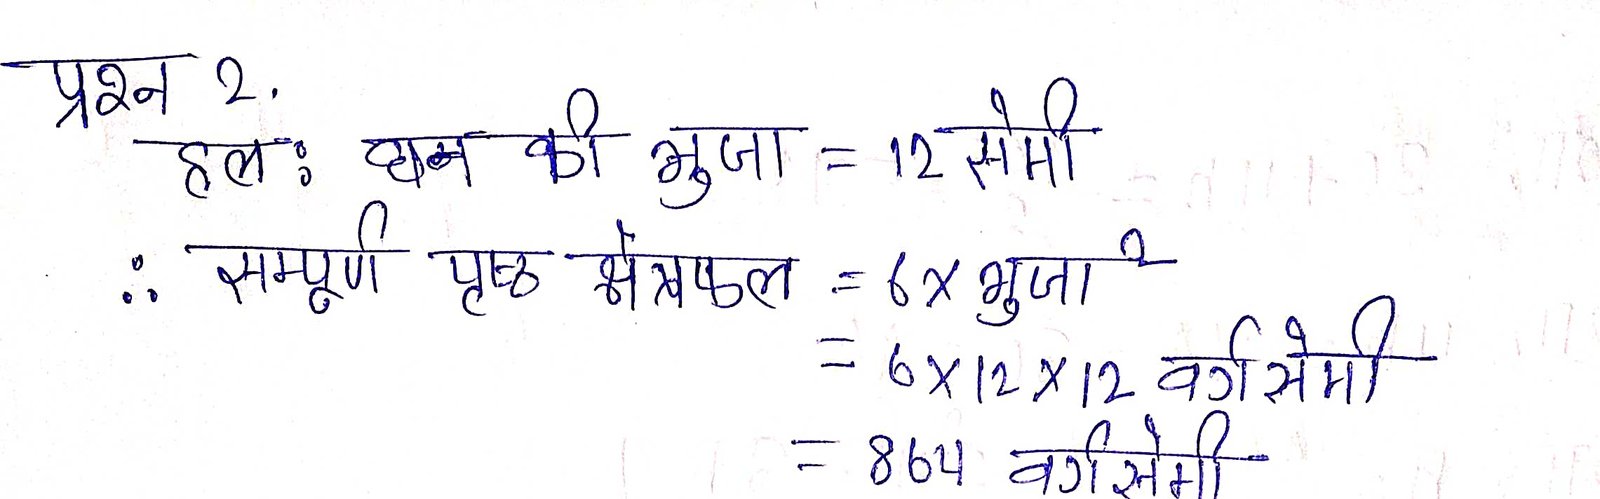 प्रश्न 2.
हल: घन की भुजा = 12 सेमी
∴ सम्पूर्ण पृष्ठ क्षेत्रफल = 6 x भुजा²
= 6 x 12 x 12 वर्ग सेमी
= 864 वर्ग सेमी